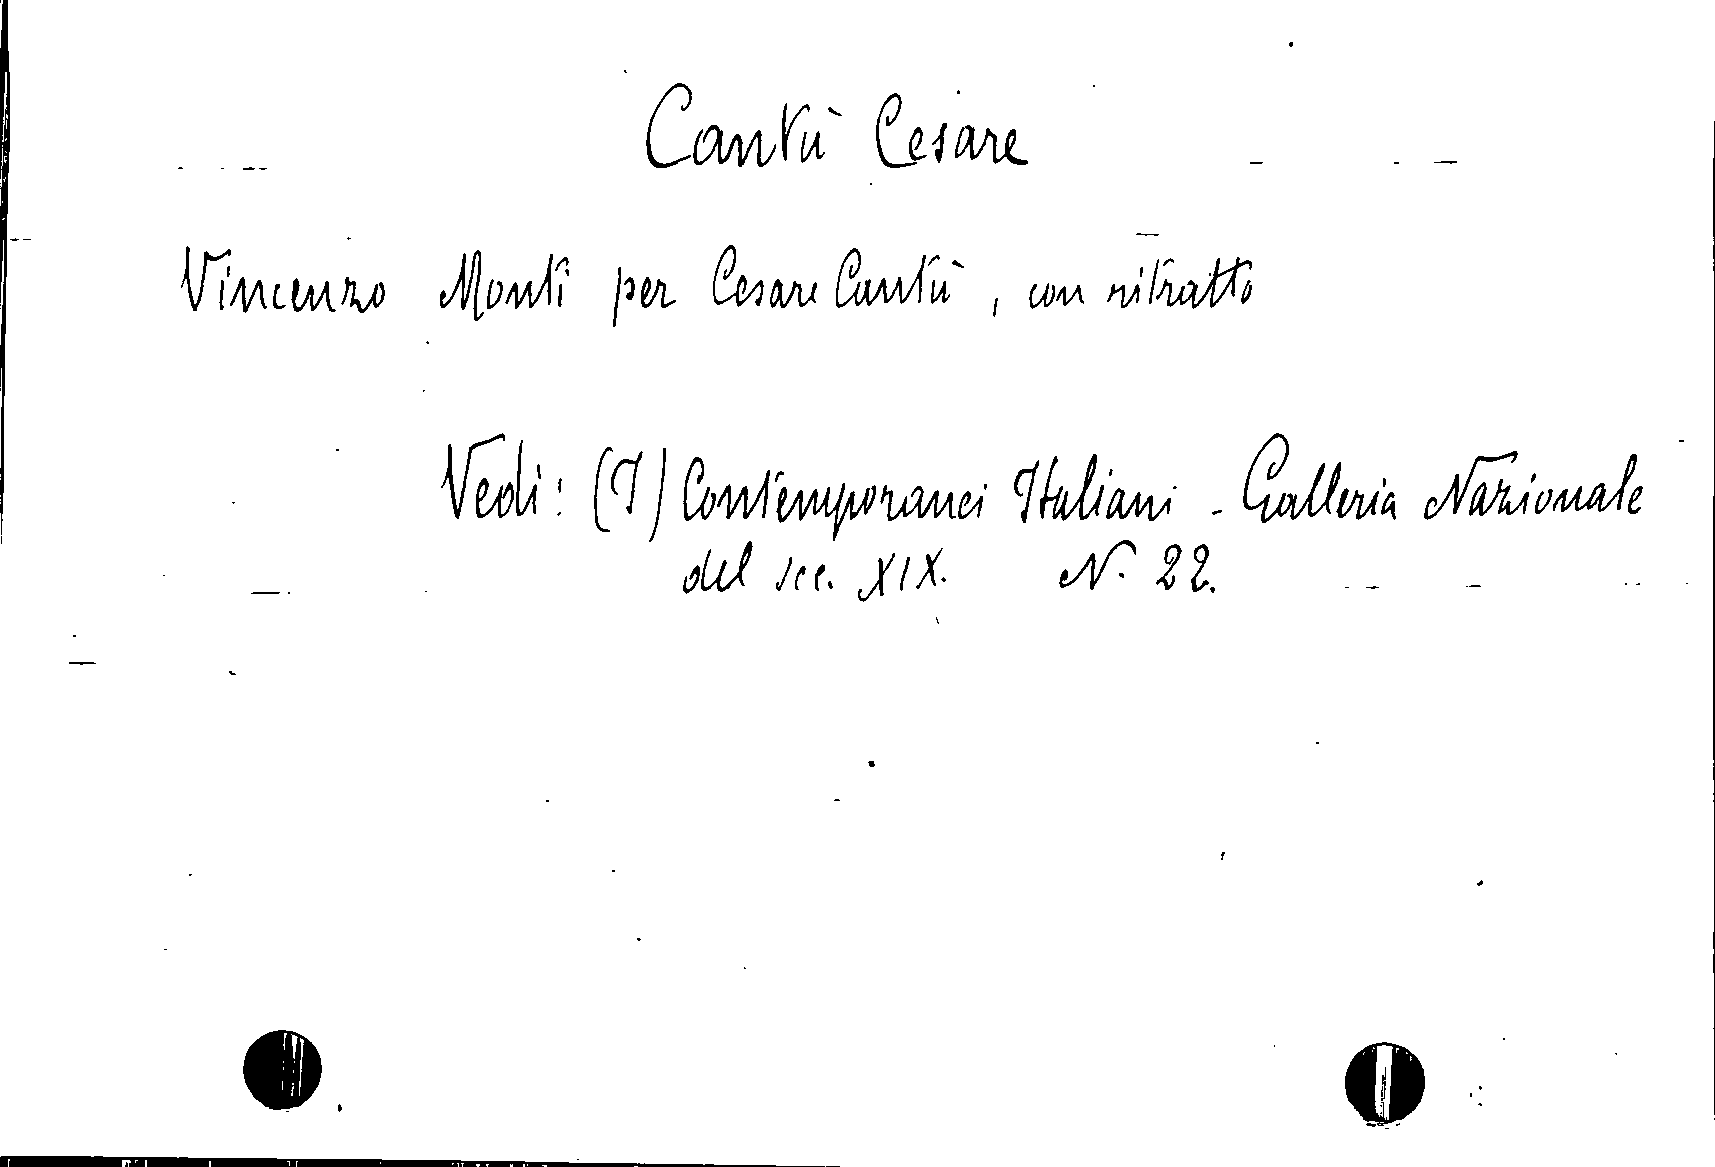 Cantù Cesare
Vincenzo Monti per Cesare Cantù, con ritratto
Vedi: (I) Contemporanei Italiani - Galleria Nazionale
del sec. XIX. N. 22.